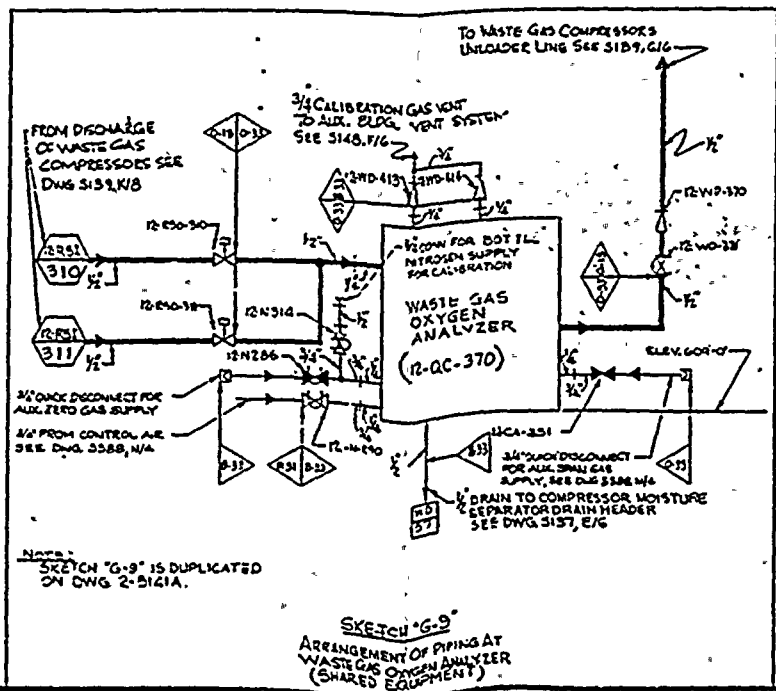 TO WASTE GAS COMPRESSORS
UNLOADER LINE SEE 5139, G/6
3/4 CALIBRATION GAS VENT
TO AUX. BLDG. VENT SYSTEM
SEE 5148, F/6
FROM DISCHARGE
OF WASTE GAS
COMPRESSORS SEE
DWG 5139, K/8
12-RSO-310
12-RSI
310
1/2"
1/2"
1/2"
12-RSI
311
1/2"
12-N286
12-N314
1/2" CONN FOR BOTTLE
NITROGEN SUPPLY
FOR CALIBRATION
WASTE GAS
OXYGEN
ANALYZER
(12-QC-370)
1/2"
12-WD-370
1/2"
ELEV. 609'-0"
3/4" QUICK DISCONNECT FOR
AUX. ZERO GAS SUPPLY
FROM CONTROL AIR
SEE DWG 5388, N/4
3/4" QUICK DISCONNECT
FOR AUX. SPAN GAS
SUPPLY, SEE DWG 5388 N/4
1/2"
1/2" DRAIN TO COMPRESSOR MOISTURE
SEPARATOR DRAIN HEADER
SEE DWG 5137, E/6
NOTE:
SKETCH "G-9" IS DUPLICATED
ON DWG 2-5141A.
SKETCH "G-9"
ARRANGEMENT OF PIPING AT
WASTE GAS OXYGEN ANALYZER
(SHARED EQUIPMENT)